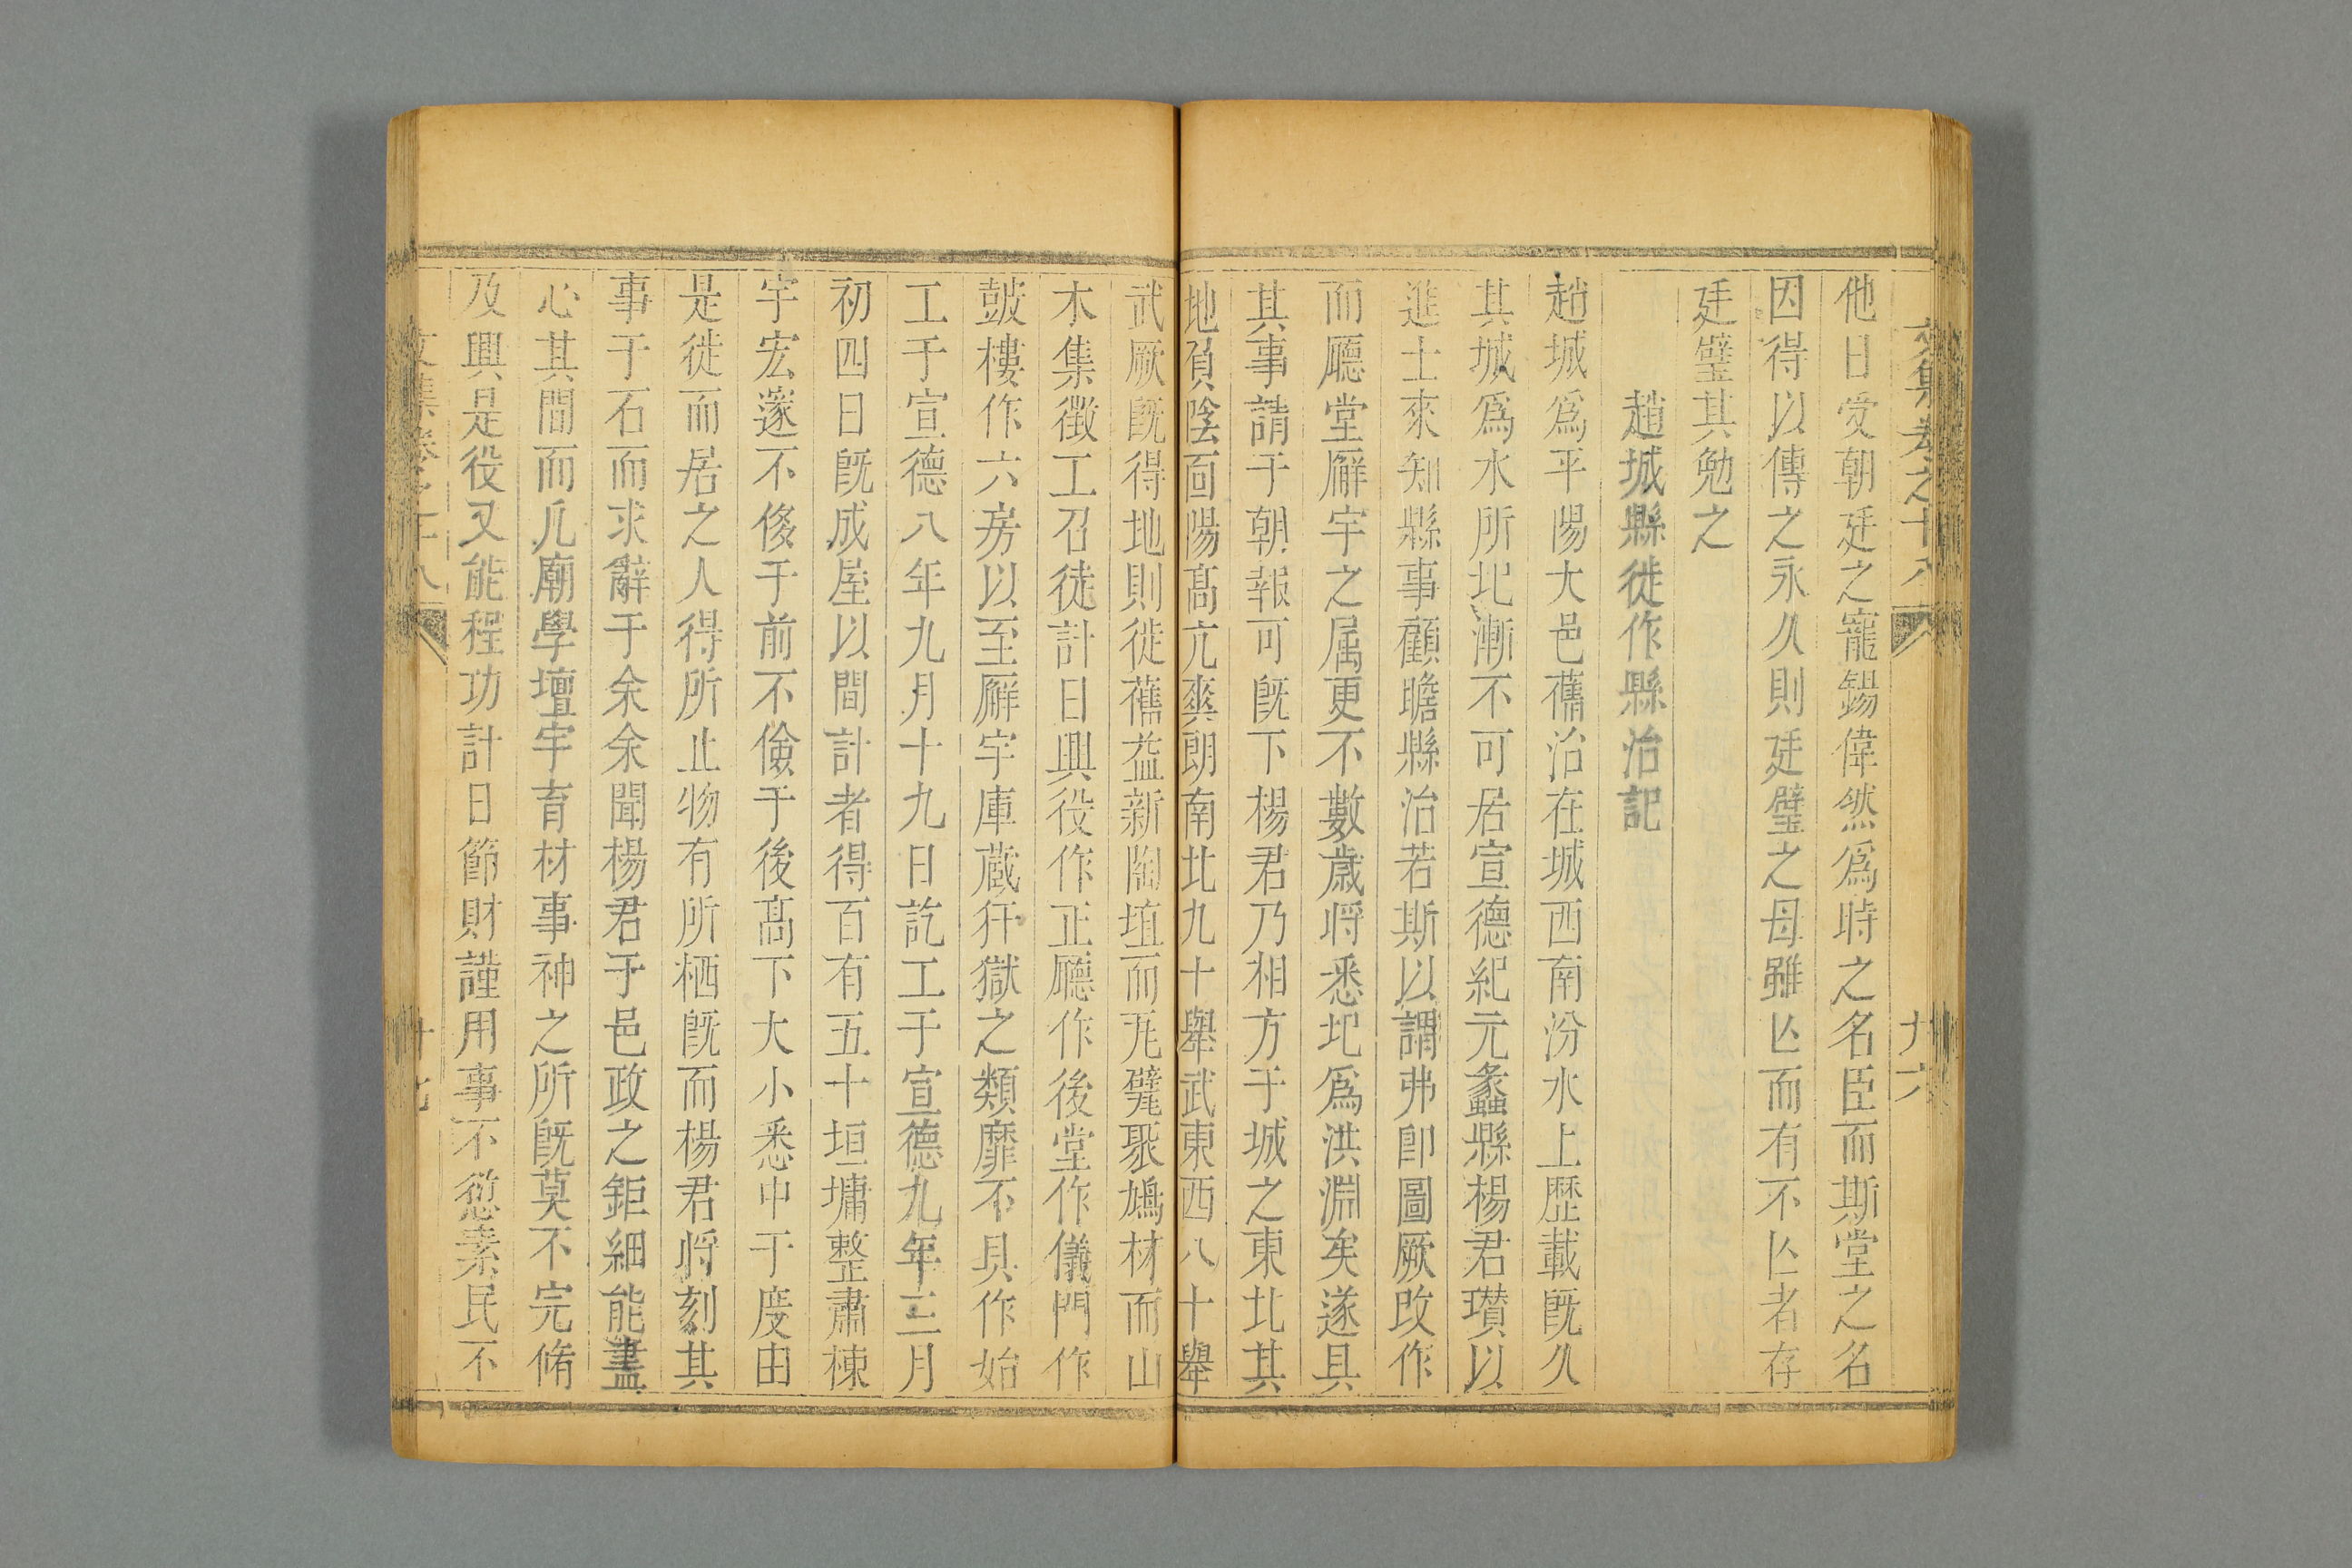 文集卷之十八
十六
他日受朝廷之寵錫偉然爲時之名臣而斯堂之名
因得以傳之永久則廷璧之母雖亾而有不亾者存
廷璧其勉之
趙城縣徙作縣治記
趙城爲平陽大邑舊治在城西南汾水上歴載旣久
其城爲水所圮漸不可居宣德紀元蠡縣楊君瓚以
進士來知縣事顧瞻縣治若斯以謂弗卽圖厥攺作
而廳堂廨宇之属更不數歳将悉圮爲洪淵矣遂具
其事請于朝報可旣下楊君乃相方于城之東北其
地負陰面陽髙亢爽朗南北九十舉武東西八十舉
武厥旣得地則徙舊益新陶埴而瓦甓聚鳩材而山
木集徴工召徒計日興役作正廳作後堂作儀門作
鼓樓作六房以至廨宇庫蔵犴獄之類靡不具作始
工于宣德八年九月十九日訖工于宣德九年三月
初四日旣成屋以間計者得百有五十垣墉整肅棟
宇宏邃不侈于前不儉于後髙下大小悉中于度由
是徙而居之人得所止物有所栖旣而楊君将刻其
事于石而求辭于余余聞楊君于邑政之鉅細能盡
心其間而凡廟學壇宇育材事神之所旣莫不完脩
及興是役又能程功計日節財謹用事不愆素民不
文集卷之十八
十七